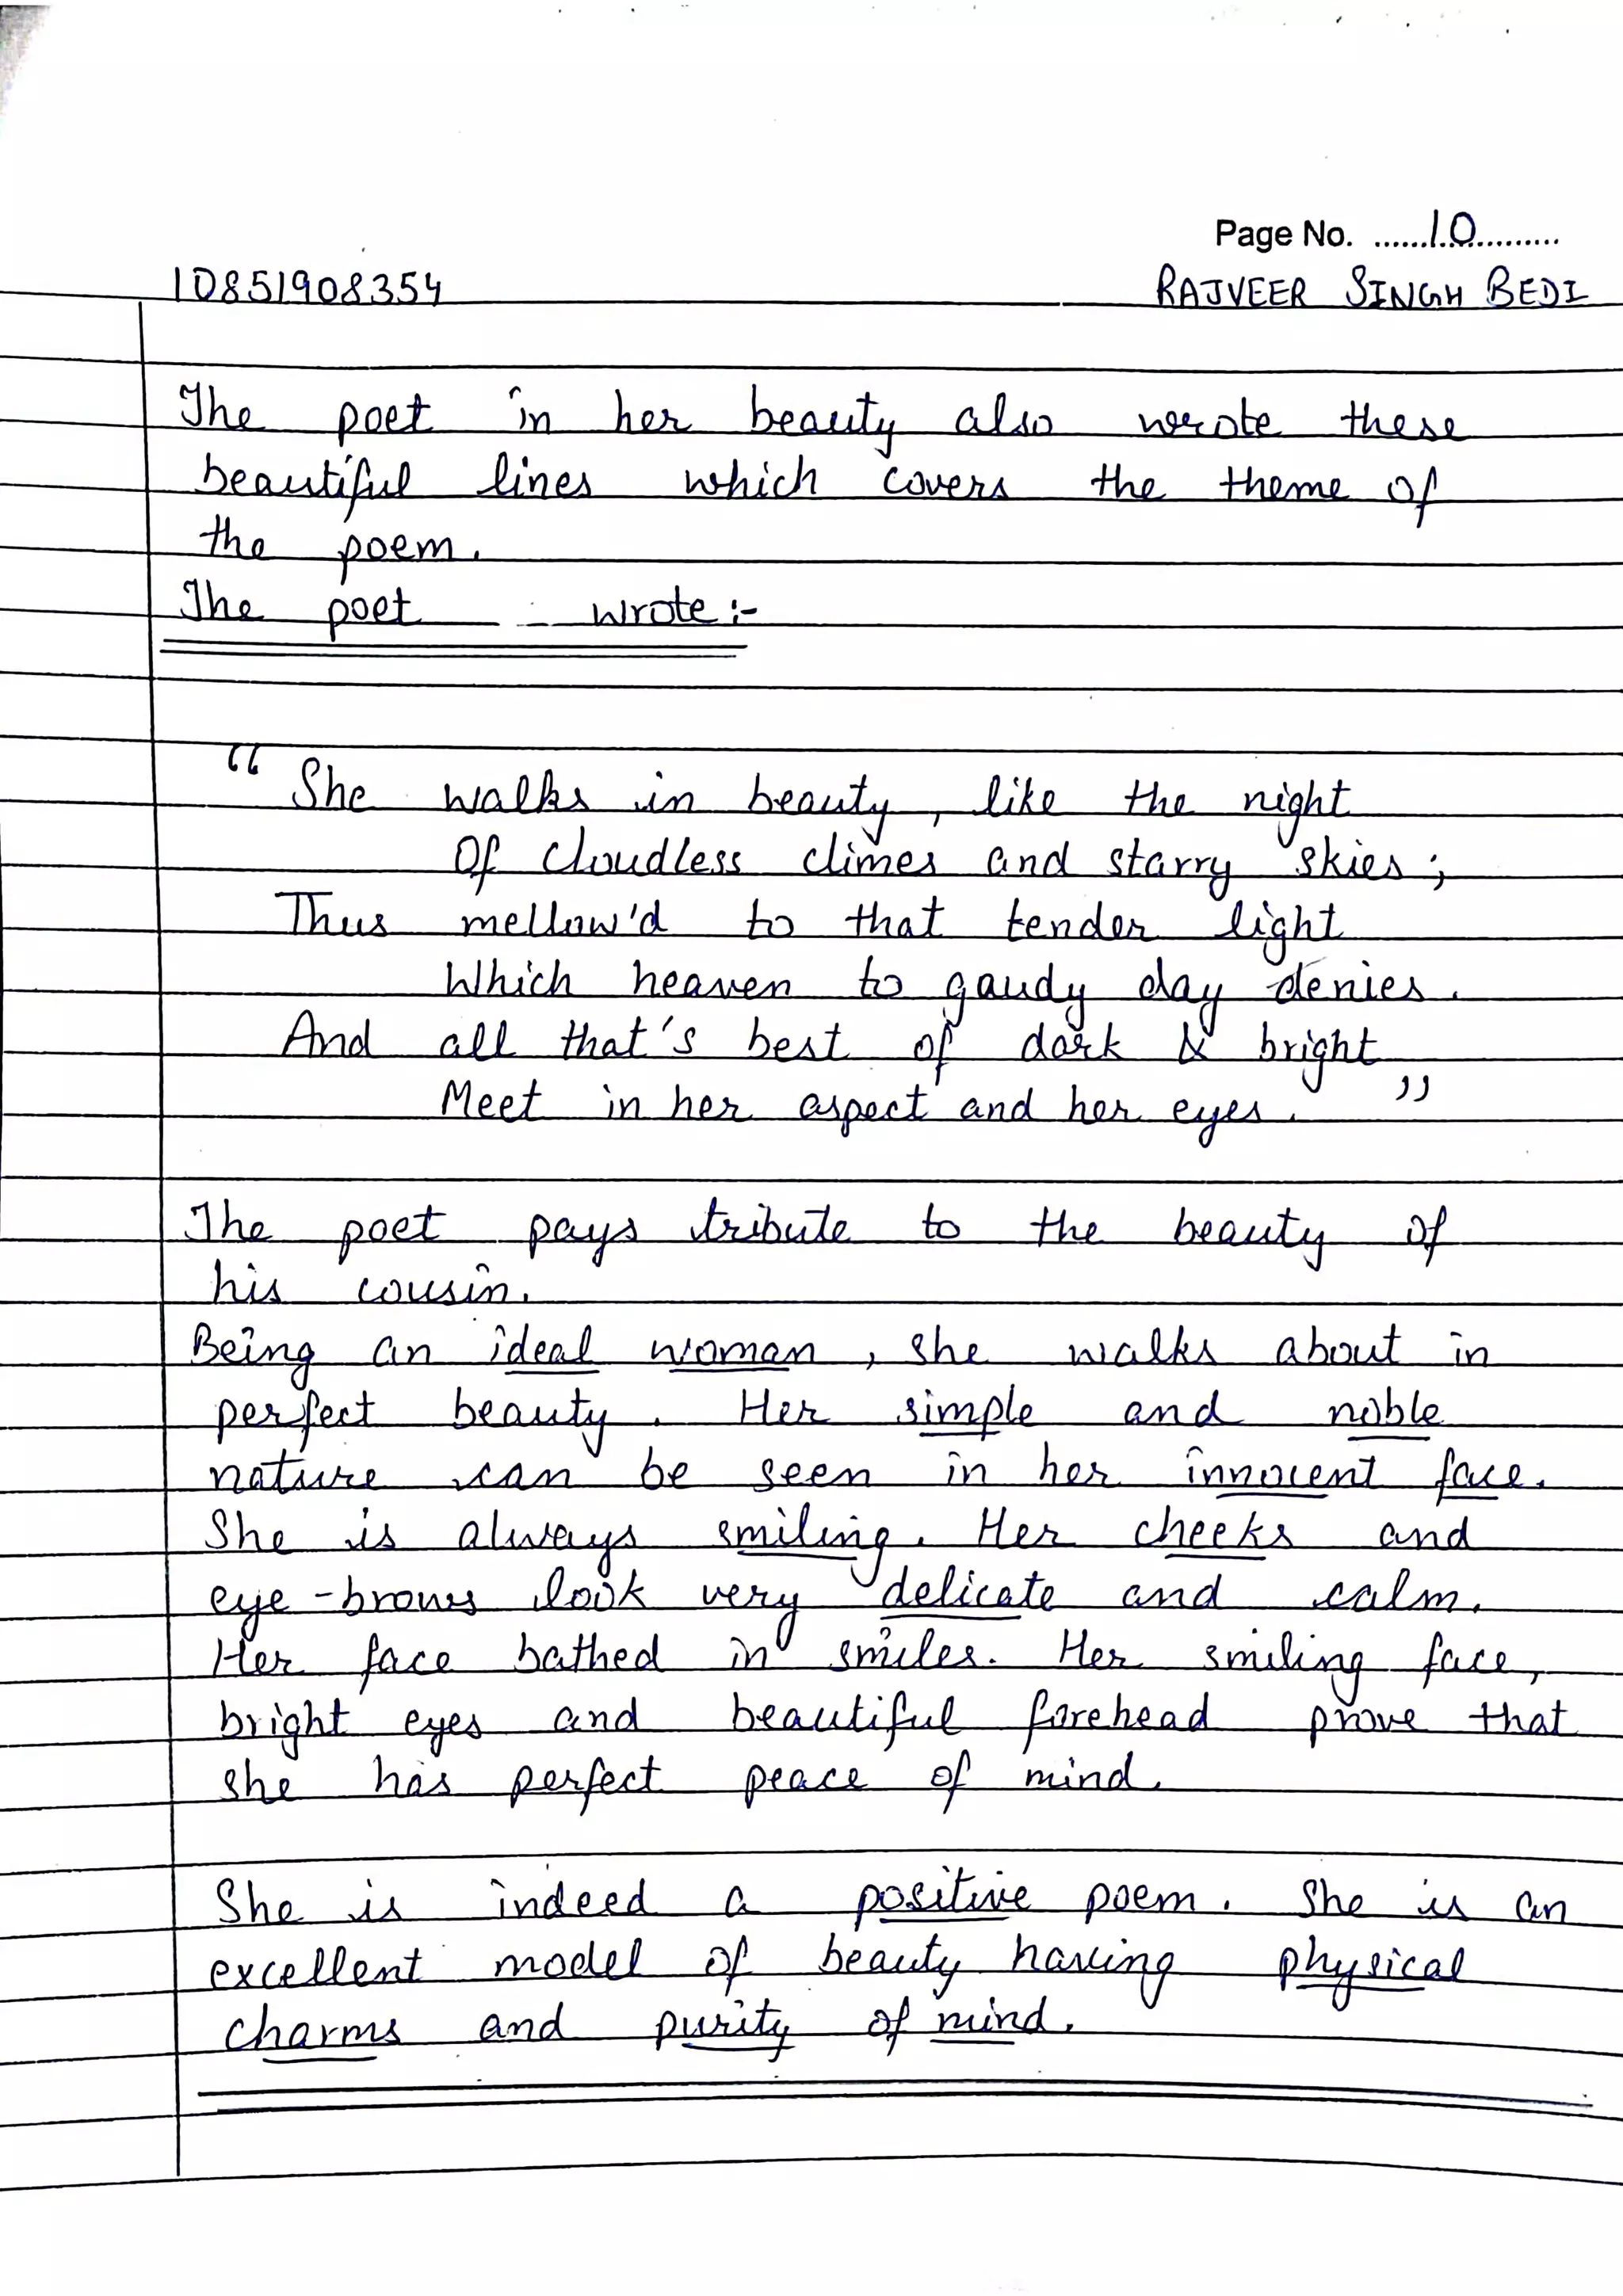 Page No. .......10...........
10851908354 RAJVEER SINGH BEDI
The poet in her beauty also wrote these
beautiful lines which covers the theme of
the poem.
The poet wrote :-
“ She walks in beauty, like the night
Of cloudless climes and starry skies ;
Thus mellow'd to that tender light
Which heaven to gaudy day denies.
And all that's best of dark & bright
Meet in her aspect and her eyes. ”
The poet pays tribute to the beauty of
his cousin.
Being an ideal woman, she walks about in
perfect beauty. Her simple and noble
nature can be seen in her innocent face.
She is always smiling. Her cheeks and
eye-brows look very delicate and calm.
Her face bathed in smiles. Her smiling face,
bright eyes and beautiful forehead prove that
she has perfect peace of mind.
She is indeed a positive poem. She is an
excellent model of beauty having physical
charms and purity of mind.